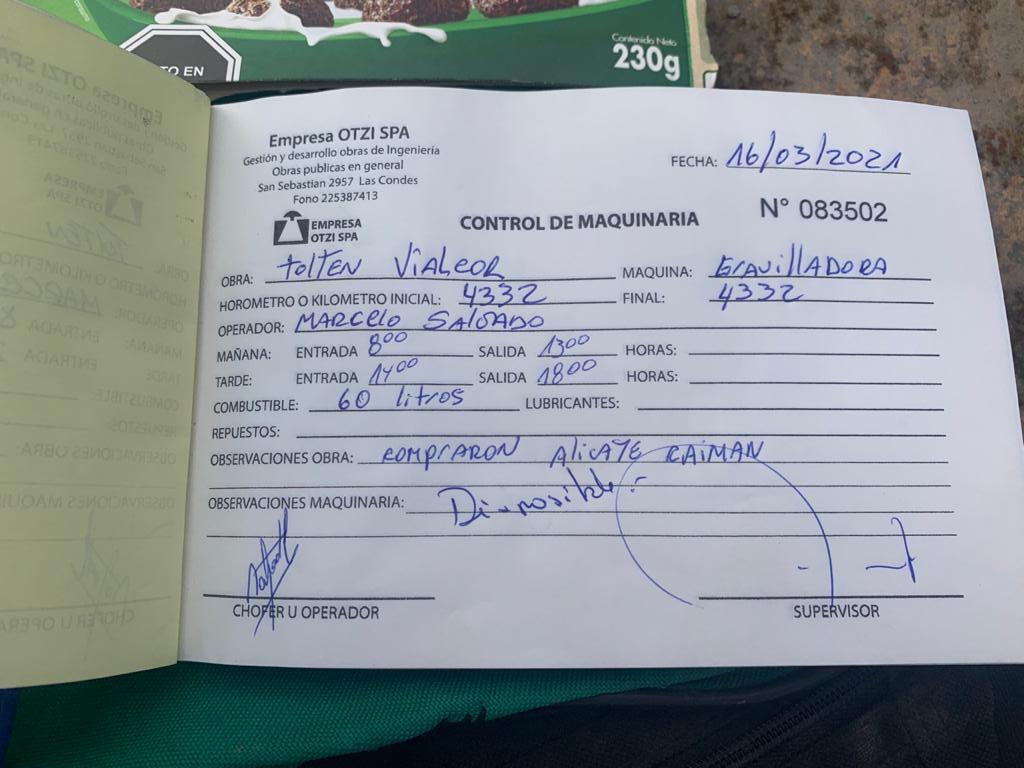 TO EN
Contenido Neto
230g
Empresa OTZI SPA
Gestión y desarrollo obras de Ingeniería
Obras publicas en general
San Sebastian 2957 Las Condes
Fono 225387413
EMPRESA
OTZI SPA
FECHA: 16/03/2021
CONTROL DE MAQUINARIA N° 083502
OBRA: TOLTEN ViALCOR MAQUINA: GRAVillADORA
HOROMETRO O KILOMETRO INICIAL: 4332 FINAL: 4332
OPERADOR: MARCElo SALGADO
MAÑANA: ENTRADA 8⁰⁰ SALIDA 13⁰⁰ HORAS:
TARDE: ENTRADA 14⁰⁰ SALIDA 18⁰⁰ HORAS:
COMBUSTIBLE: 60 litros LUBRICANTES:
REPUESTOS:
OBSERVACIONES OBRA: COMPRARON AliCATE CAiMAN
OBSERVACIONES MAQUINARIA: Disponible.-
CHOFER U OPERADOR SUPERVISOR